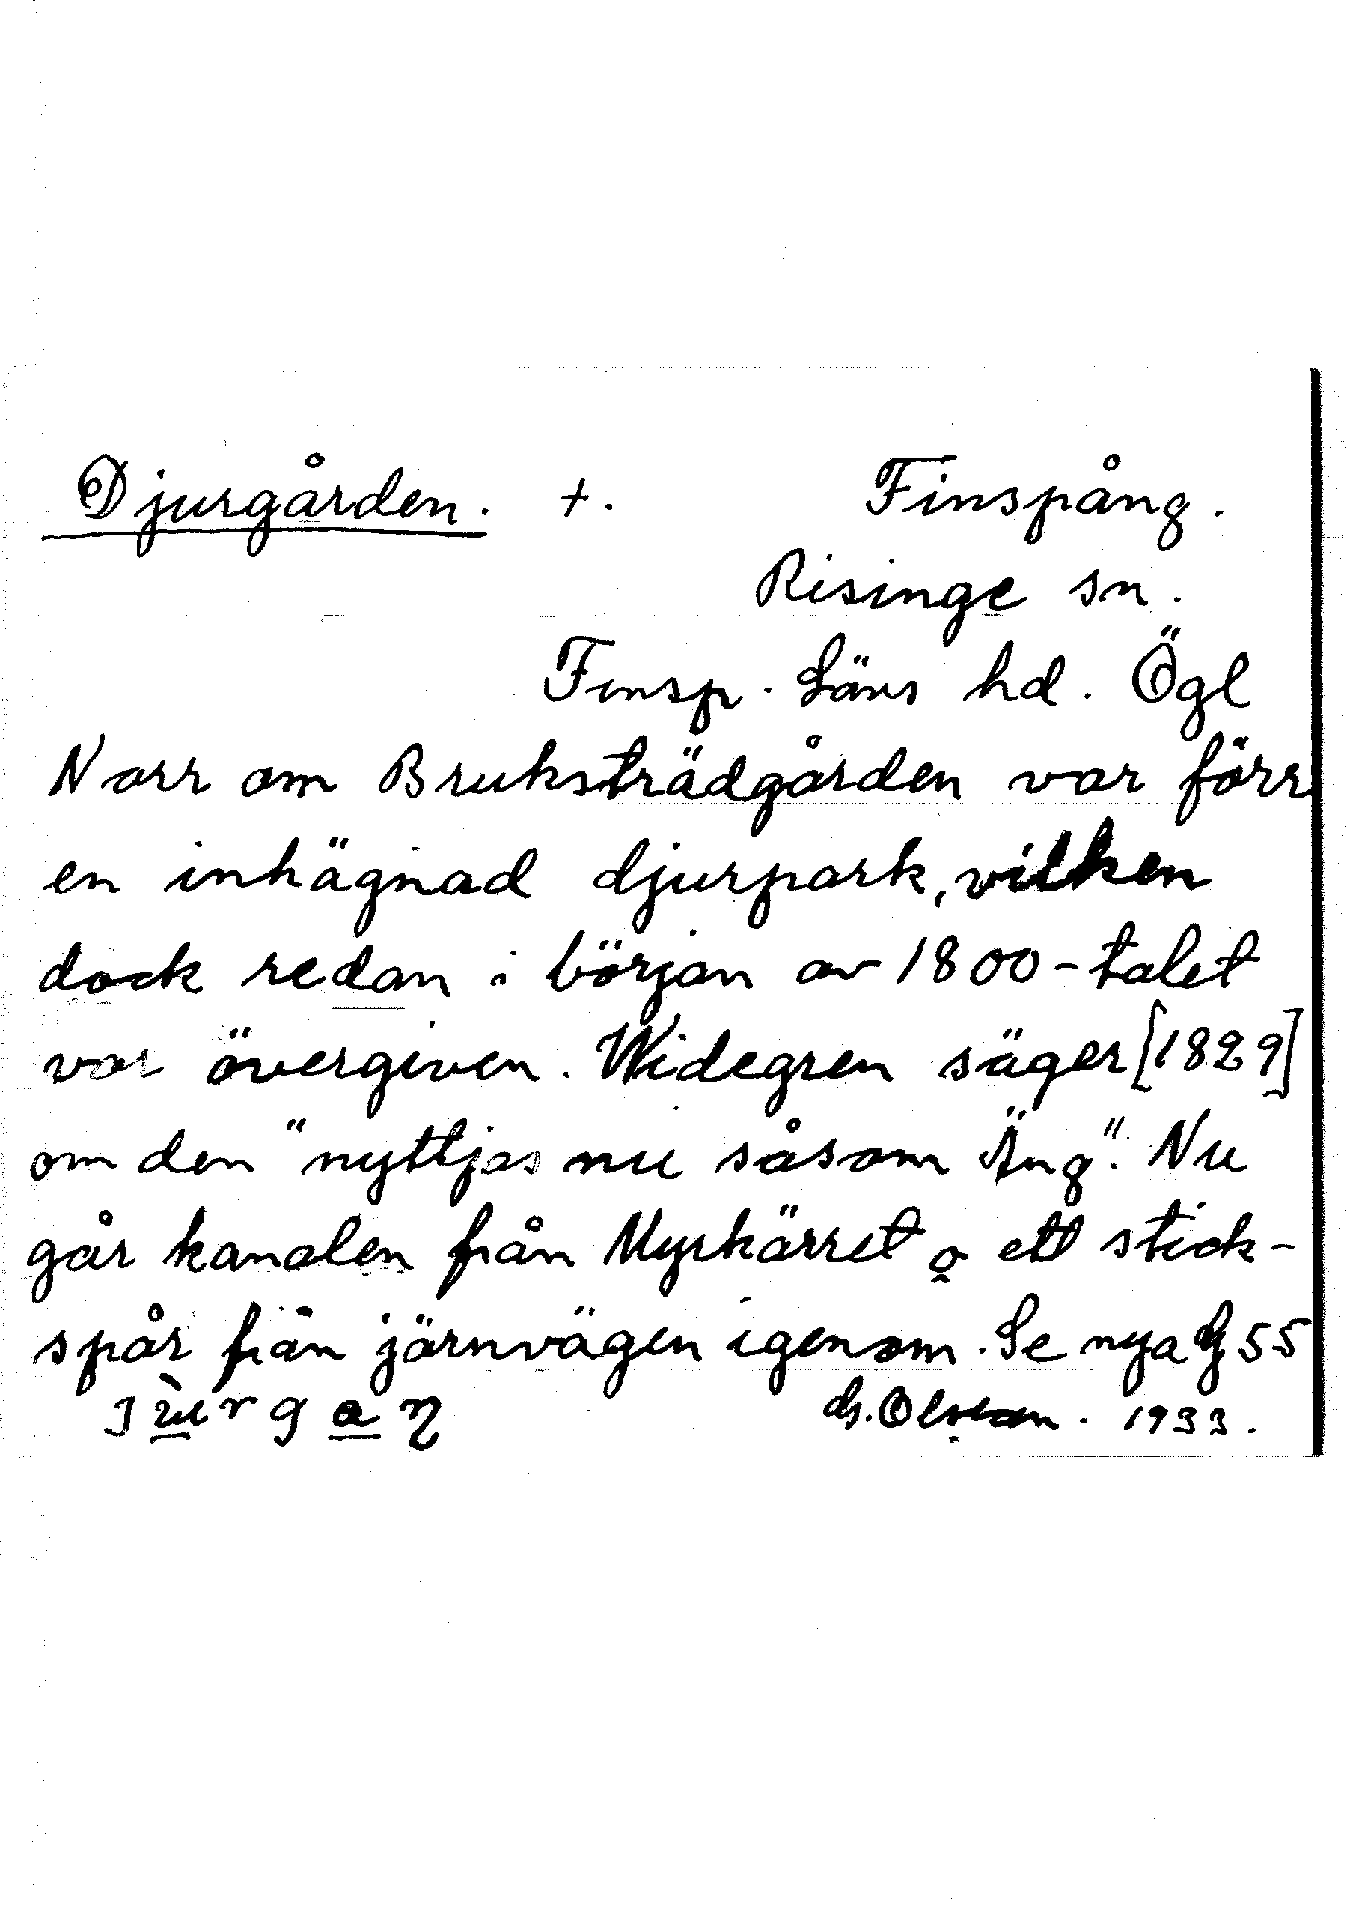 Djurgården. +. Finspång.
Risinge sn.
Finsp. Läns hd. Ögl
Norr om Bruksträdgården var förr
en inhägnad djurpark, vilken
dock redan i början av 1800-talet
var övergiven. Widegren säger [1829]
om den "nyttjas nu såsom Äng". Nu
går kanalen från Myrkärret o ett stick-
spår från järnvägen igenom. Se nya 55
Olsson. 1933.